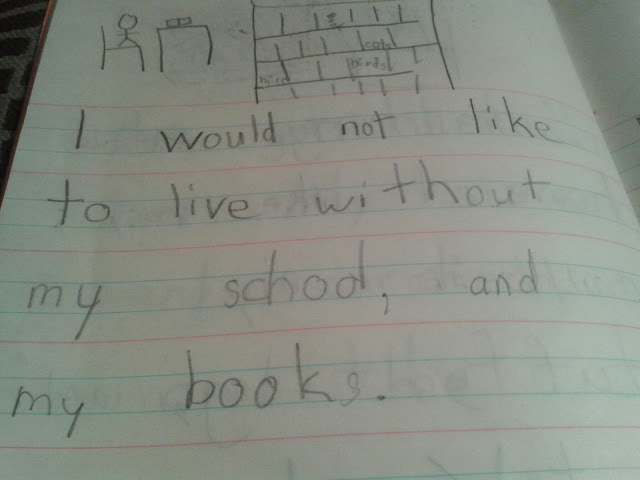 cats
birds
bird
I would not like
to live without
my school, and
my books.